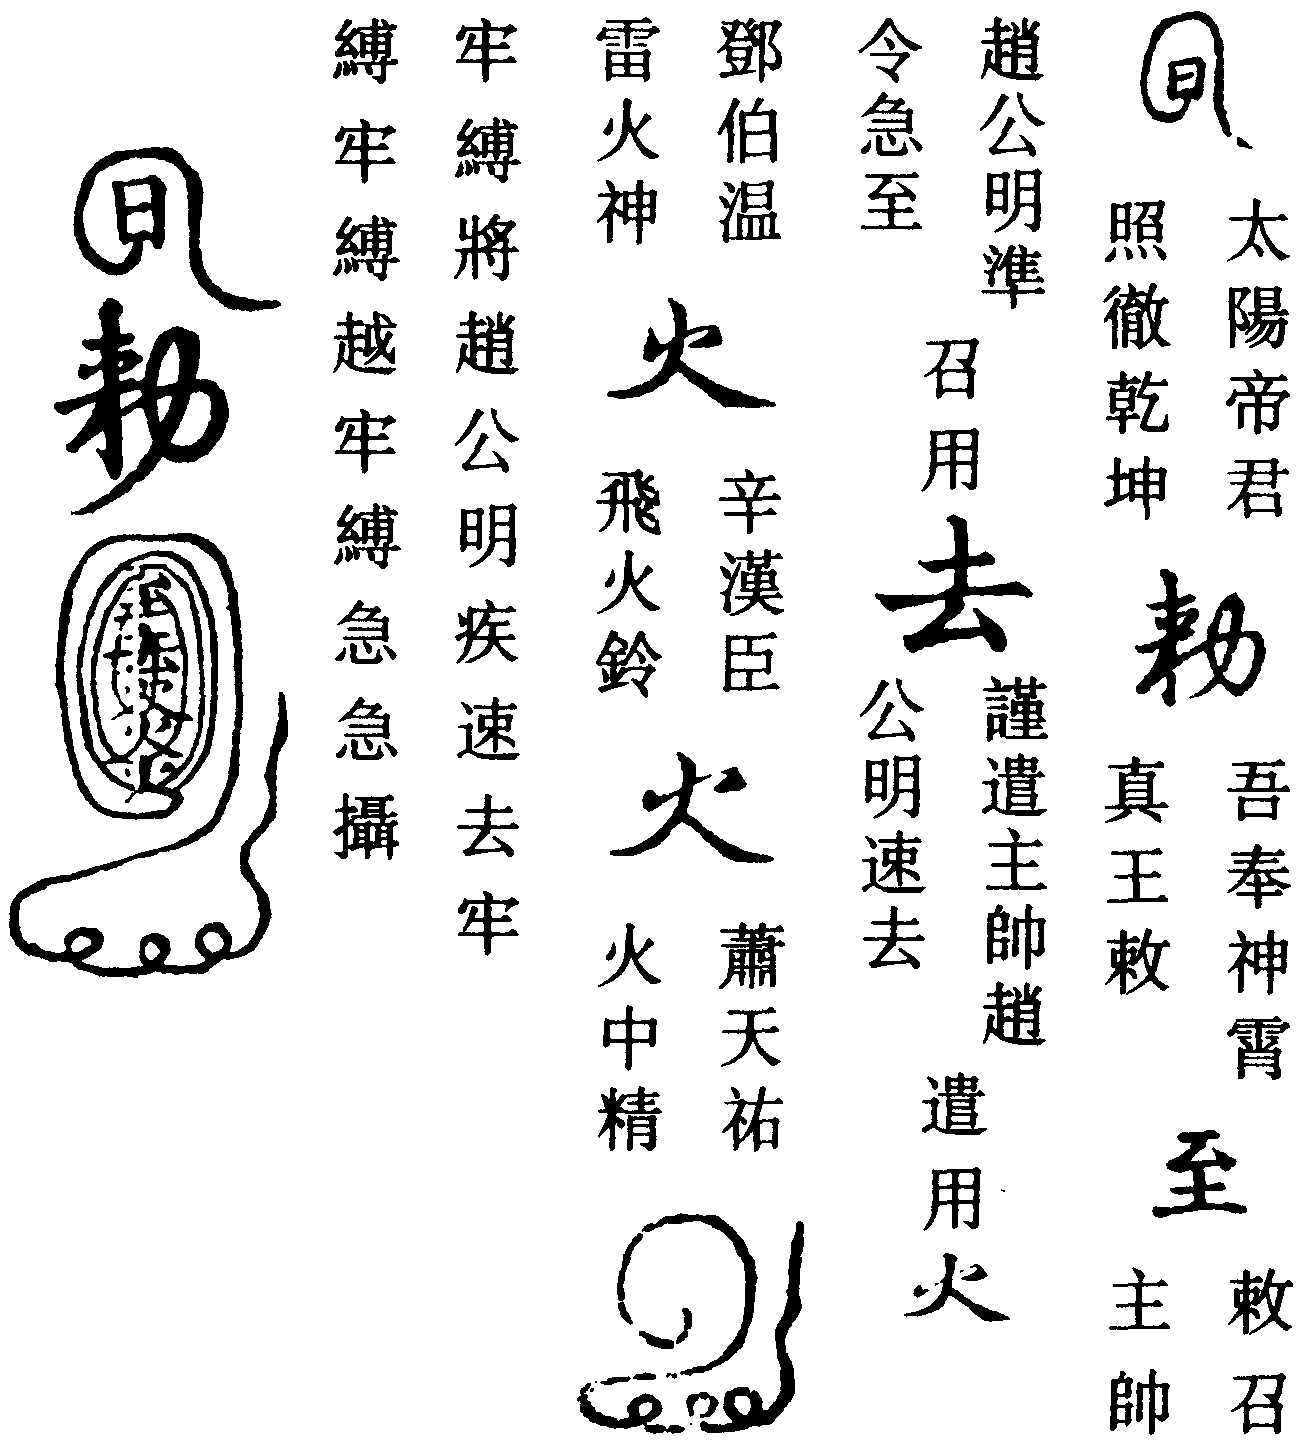 日
太陽帝君
照徹乾坤
勅
吾奉神霄
真王敕
至
敕召
主帥
趙公明準
令急至
召用
去
謹遣主帥趙
公明速去
遣用
火
鄧伯温
雷火神
火
辛漢臣
飛火鈴
火
蕭天祐
火中精
牢縛將趙公明疾速去牢
縛牢縛越牢縛急急攝
日
勅